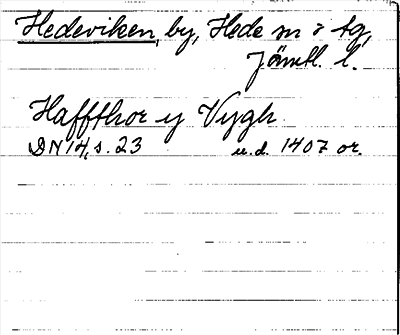 Hedeviken, by, Hede sn o tg,
Jämtl. l.
Haffthor y Vygh
DN 14, s. 23 u.d. 1407 or.